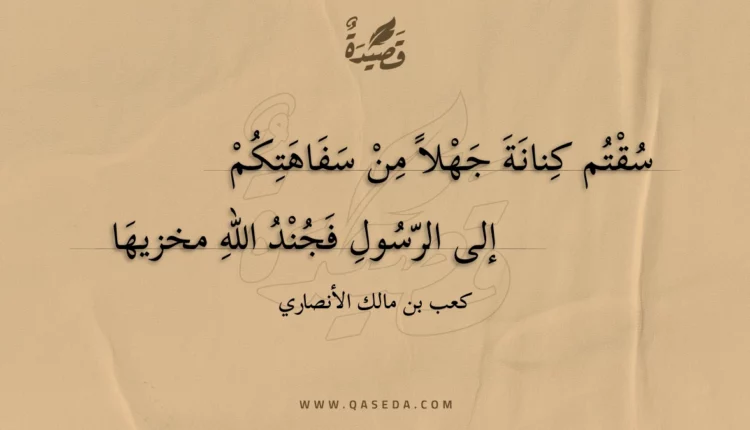 قَصِيدَةٌ
سُقْتُم كِنانَةَ جَهْلاً مِنْ سَفَاهَتِكُمْ
إلى الرّسُولِ فَجُنْدُ اللهِ مخزيهَا
كعب بن مالك الأنصاري
WWW.QASEDA.COM